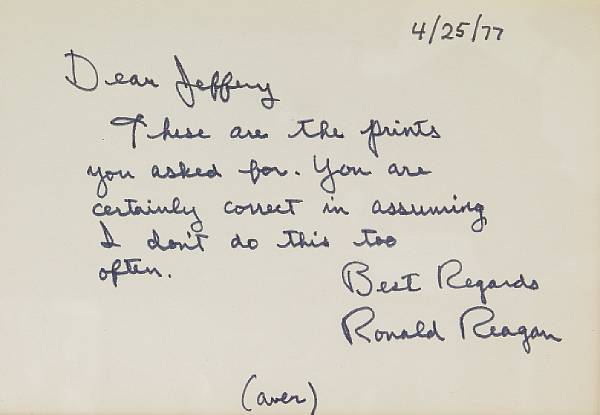 4/25/77
Dear Jeffery
These are the prints
you asked for. You are
certainly correct in assuming
I don't do this too
often.
Best Regards
Ronald Reagan
(over)